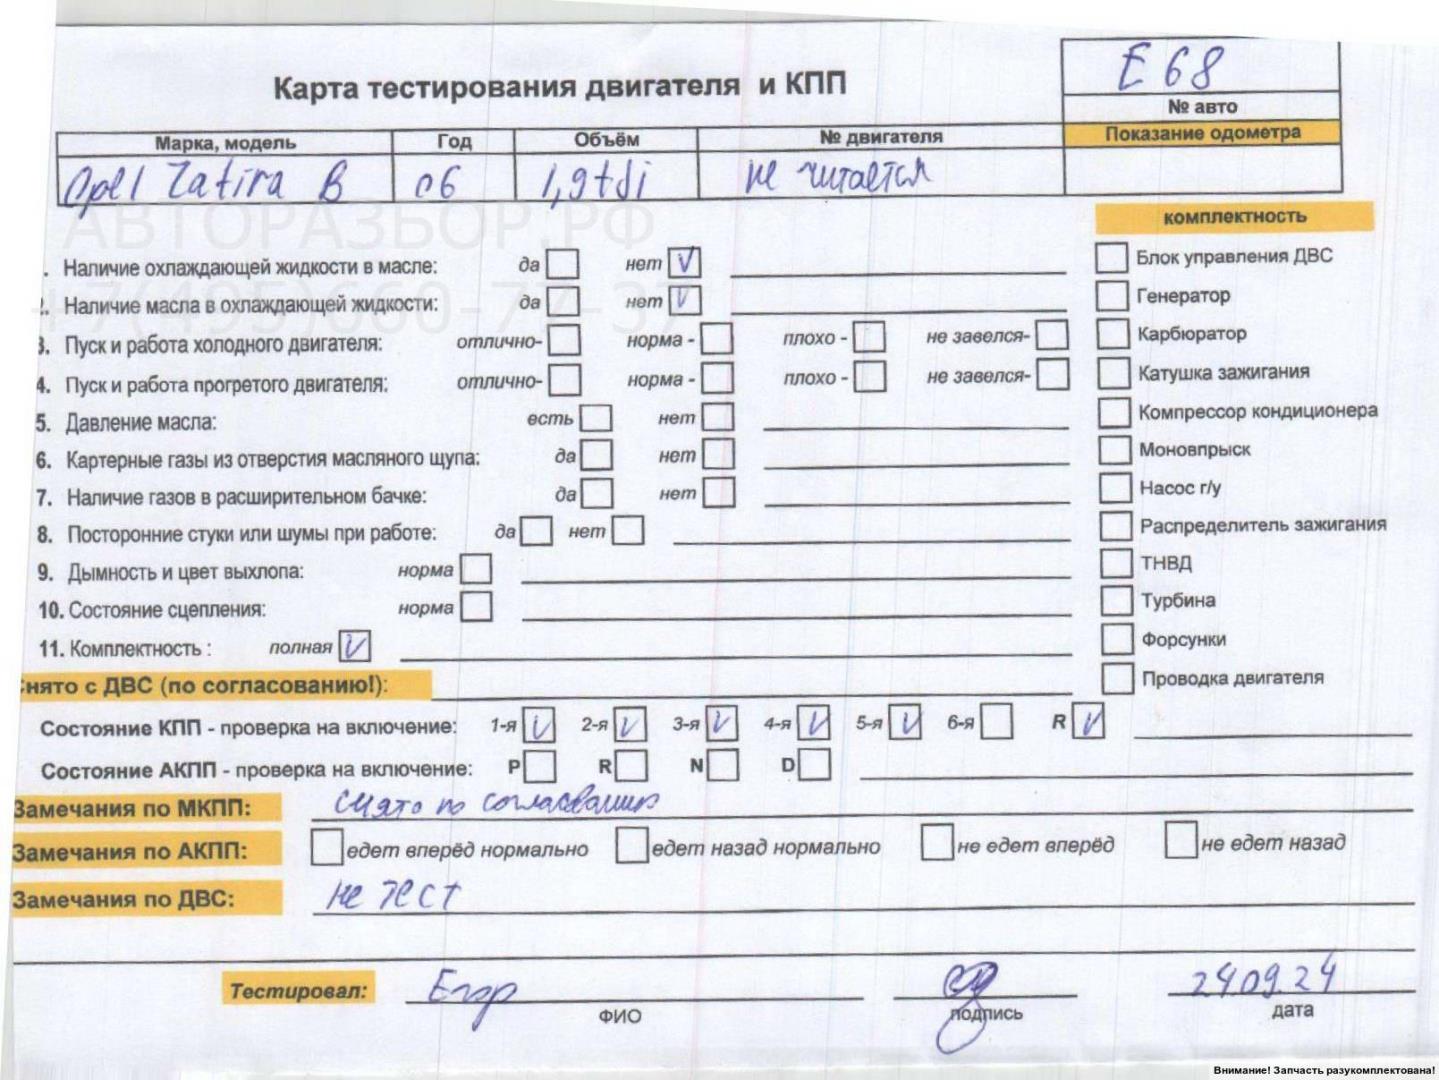 E68
Карта тестирования двигателя и КПП
№ авто
Марка, модель Год Объём № двигателя Показание одометра
Opel Zafira B 06 1,9tdi не читается
АВТОРАЗБОР.РФ
+7(495)660-77-37
комплектность
. Наличие охлаждающей жидкости в масле: да нет V
2. Наличие масла в охлаждающей жидкости: да нет V
3. Пуск и работа холодного двигателя: отлично- норма - плохо - не завелся-
4. Пуск и работа прогретого двигателя: отлично- норма - плохо - не завелся-
5. Давление масла: есть нет
6. Картерные газы из отверстия масляного щупа: да нет
7. Наличие газов в расширительном бачке: да нет
8. Посторонние стуки или шумы при работе: да нет
9. Дымность и цвет выхлопа: норма
10. Состояние сцепления: норма
11. Комплектность : полная V
Блок управления ДВС
Генератор
Карбюратор
Катушка зажигания
Компрессор кондиционера
Моновпрыск
Насос г/у
Распределитель зажигания
ТНВД
Турбина
Форсунки
Проводка двигателя
Снято с ДВС (по согласованию!):
Состояние КПП - проверка на включение: 1-я V 2-я V 3-я V 4-я V 5-я V 6-я R V
Состояние АКПП - проверка на включение: P R N D
Замечания по МКПП: снято по согласованию
Замечания по АКПП: едет вперёд нормально едет назад нормально не едет вперёд не едет назад
Замечания по ДВС: не тест
Тестировал: Егор 24.09.24
ФИО подпись дата
Внимание! Запчасть разукомплектована!